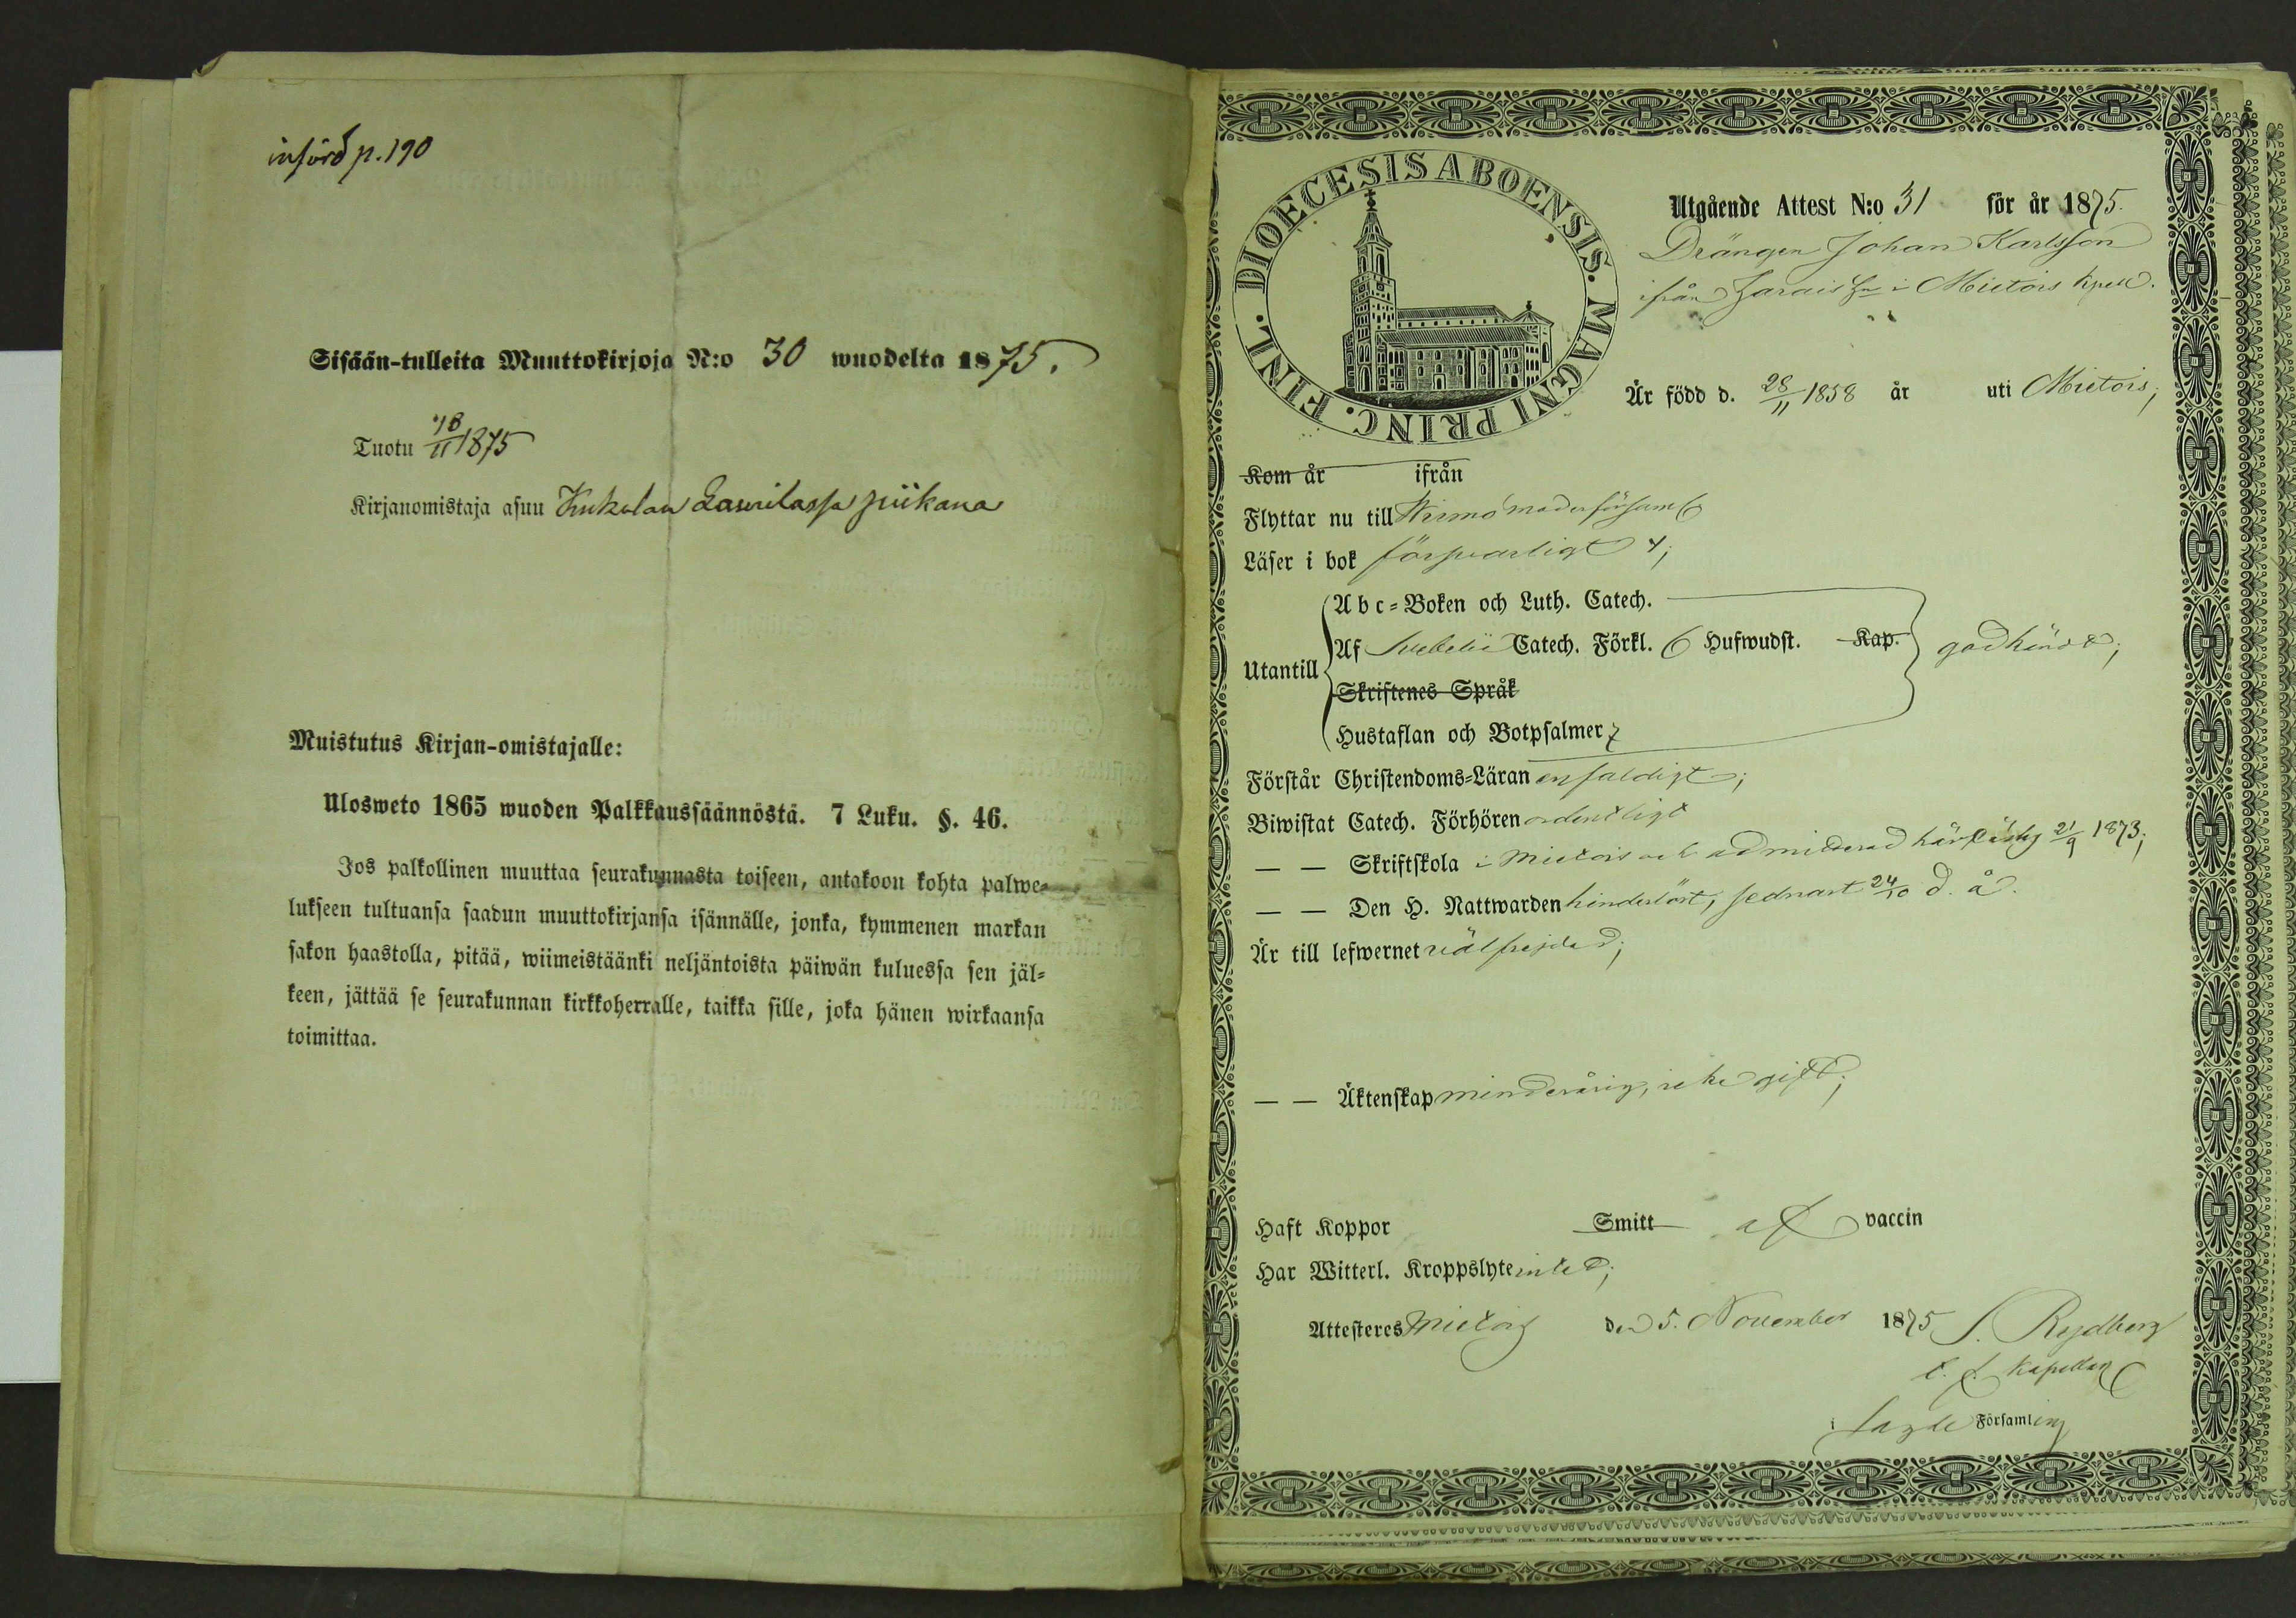 införd p. 190
Sisään-tulleita Muuttokirjoja N:o 30 wuodelta 1875.
Tuotu 18/11 1875
Kirjanomistaja asuu Kukolan Laurilassa piikana
Muistutus Kirjan-omistajalle:
Ulosweto 1865 wuoden Palkkaussäännöstä. 7 Luku. §. 46.
Jos palkollinen muuttaa seurakunnasta toiseen, antakoon kohta palwe-
lukseen tultuansa saadun muuttokirjansa isännälle, jonka, kymmenen markan
sakon haastolla, pitää, wiimeistäänki neljäntoista päiwän kuluessa sen jäl-
keen, jättää se seurakunnan kirkkoherralle, taikka sille, joka hänen wirkaansa
toimittaa.
DIOECESIS ABOENSIS. MAGNI PRINC. FINL.
Utgående Attest N:o 31 för år 1875.
Drängen Johan Karlsson
ifrån i Mietois kpell.
Är född d. 28/11 1858 år uti Mietois;
Kom år ifrån
Flyttar nu till Wirmo moderförsaml
Läser i bok försvarligt;
Utantill
Abc-Boken och Luth. Catech.
Af Svebelii Catech. Förkl. 6 Hufwudst. Kap. godkändt;
Skriftenes Språk
Hustaflan och Botpsalmer 7
Förstår Christendoms-Läran enfaldigt;
Biwistat Catech. Förhören ordentligt
— — Skriftskola i Mietois och admitterad 21/9 1873;
— — Den H. Nattwarden hinderlöst, sednast 24/10 d. å.
Är till lefwernet välfrejdad;
— — Äktenskap minderårig, icke gift;
Haft Koppor Smitt af vaccin
Har Witterl. Kroppslyte intet;
Attesteres Mietois den 5. November 1875 S. Rydberg
t. f. Kapellan
i Församling